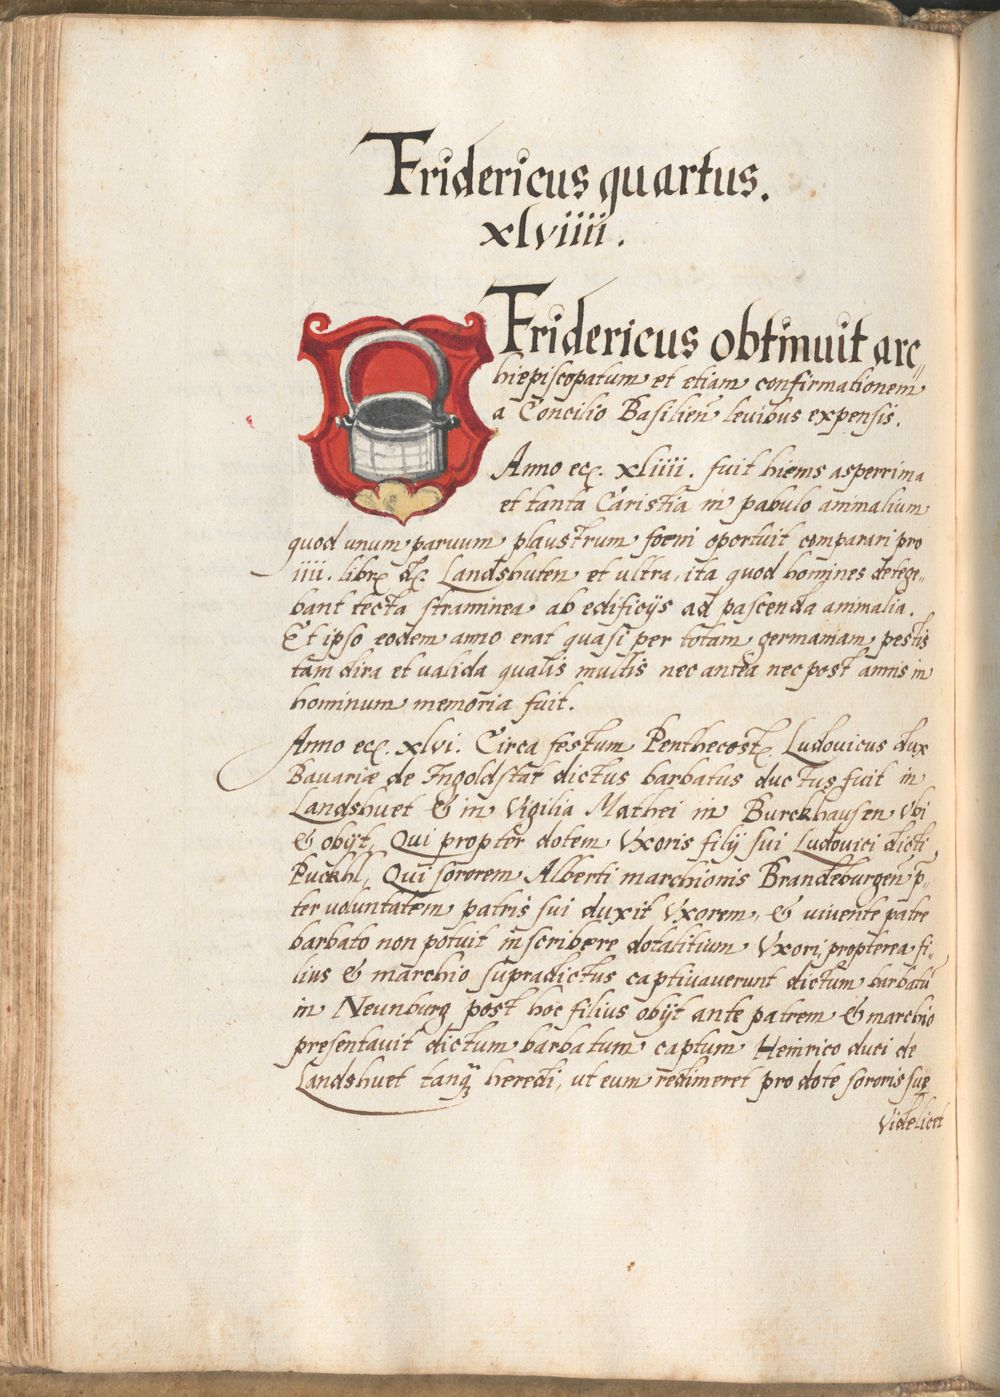 Fridericus quartus.
xlviiii.
Fridericus obtinuit arc„
hiepiscopatum et etiam confirmationem
a Concilio Basilień levibus expensis.
Anno ec. xliiii. fuit hiems asperrima
et tanta Caristia in pabulo animalium
quod unum parvum plaustrum foeni oportuit comparari pro
iiii. libr. d. Landshuten et ultra, ita quod homines detege„
bant tecta straminea ab edificijs ad pascenda animalia.
Et ipso eodem anno erat quasi per totam germaniam pestis
tam dira et valida qualis multis nec antea nec post annis in
hominum memoria fuit.
Anno ec. xlvi. Circa festum Penthecost. Ludovicus dux
Bavariæ de Ingoldstat dictus barbatus ductus fuit in
Landshuet & in Vigilia Mathei in Burckhausen Vbi
& obijt, Qui propter dotem Vxoris filij sui Ludovici dicti
Puckhl, Qui sororem Alberti marchionis Brandeburgeń p„
ter voluntatem patris sui duxit Vxorem, & vivente patre
barbato non potuit inscribere dotalitium Vxori, propterea fi„
lius & marchio supradictus captivaverunt dictum barbatū
in Neunburg post hoc filius obijt ante patrem & marchio
presentavit dictum barbatum captum Heinrico duci de
Landshuet tanq̃ heredi, ut eum redimeret pro dote sororis suę
Videlicet